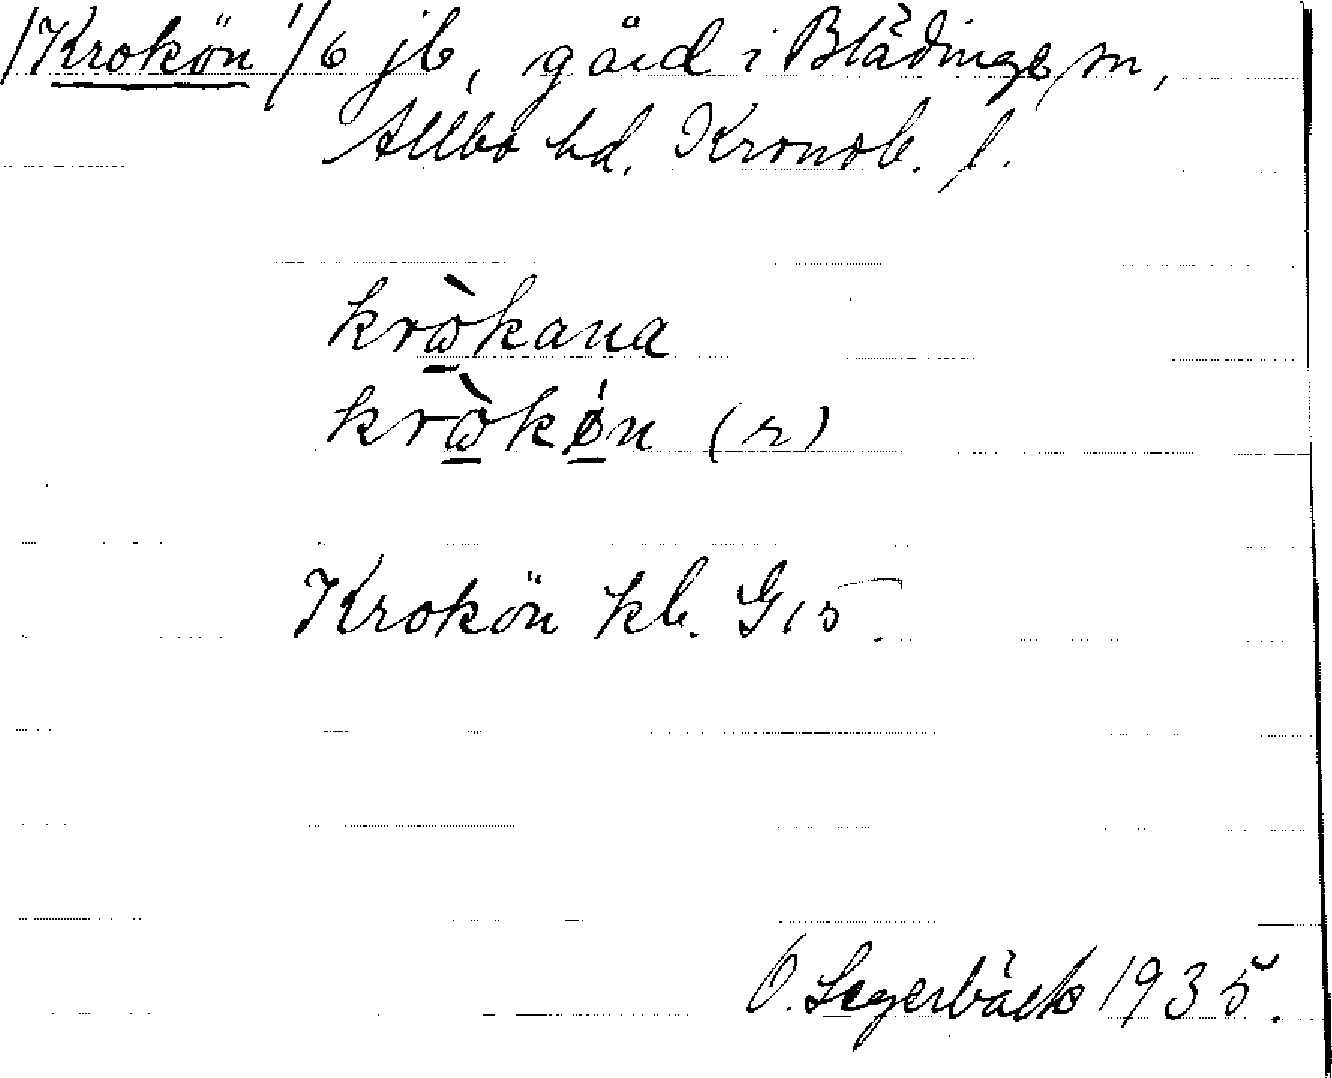 Krokön 1/6 jb, gård i Blädinge sn,
Allbo hd. Kronob. l.
krὼ̱kana
krὼ̱kø̱̍n (r)
Krokön kb. G15.
O. Segerbäck 1935.